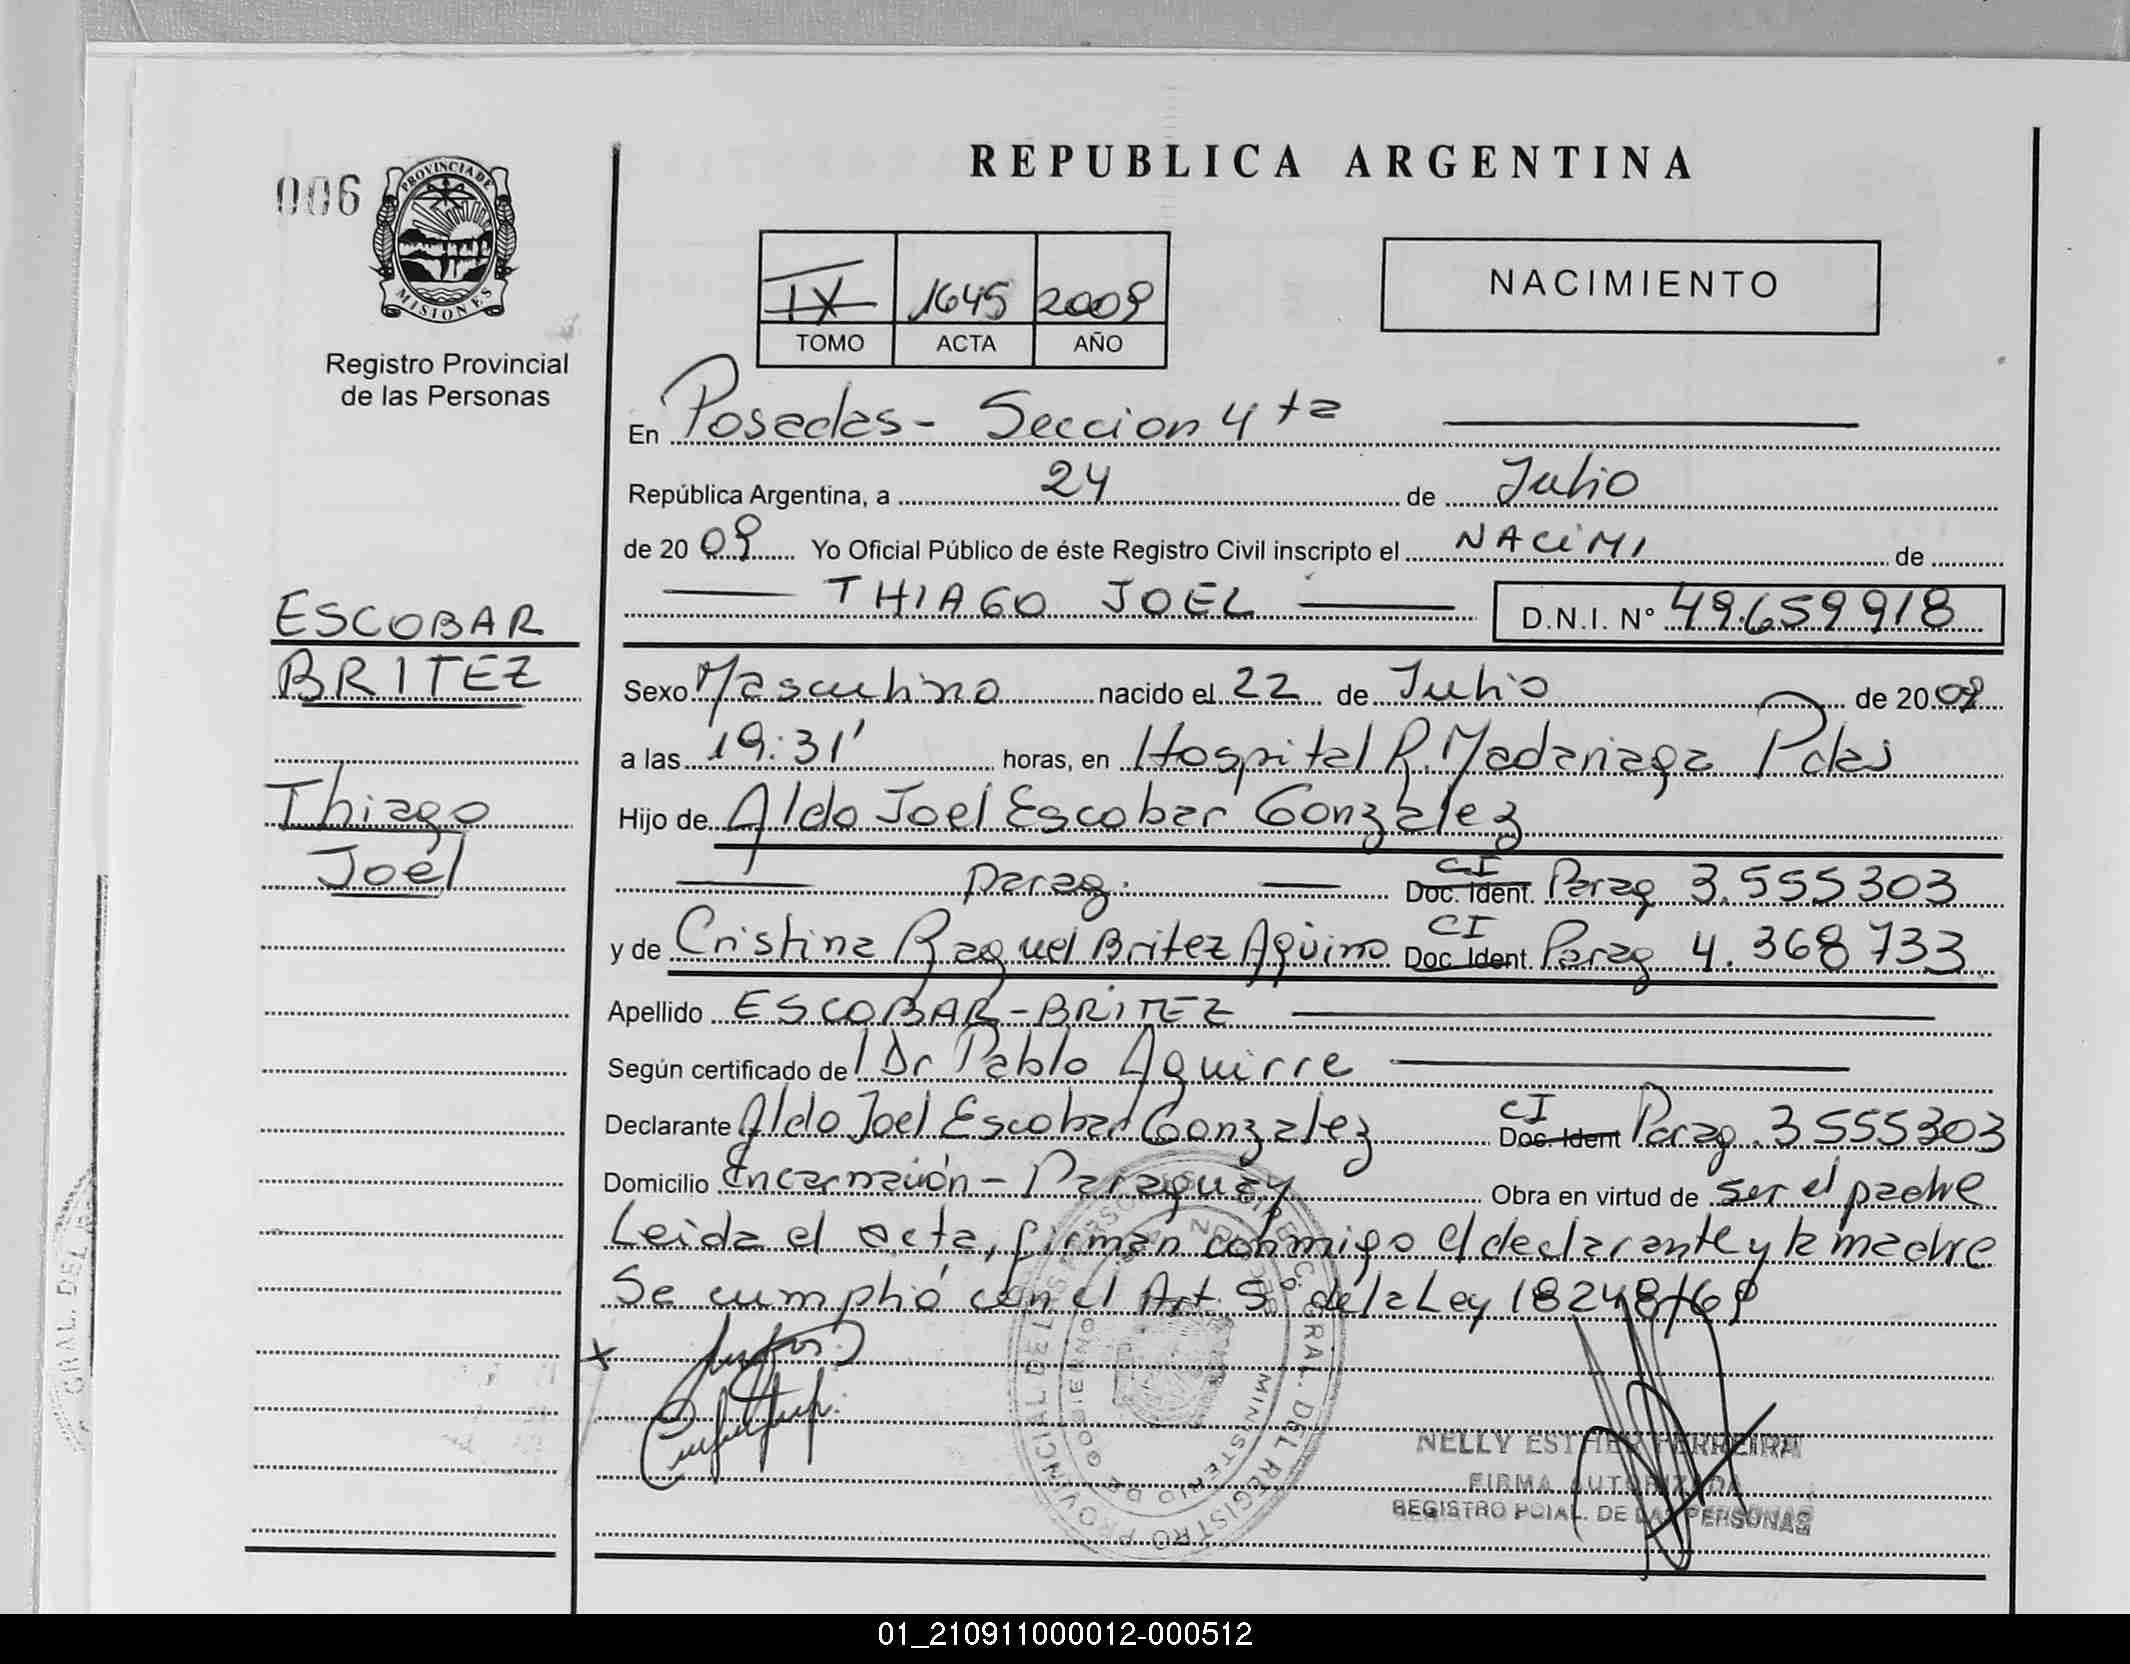 REPUBLICA ARGENTINA
006
PROVINCIA DE
MISIONES
Registro Provincial
de las Personas
IX 1645 2009
TOMO ACTA AÑO
NACIMIENTO
En Posadas - Seccion 4ta
República Argentina, a 24 de Julio
de 20 09 Yo Oficial Público de éste Registro Civil inscripto el NACIMI de
THIAGO JOEL D.N.I. N° 49.659918
ESCOBAR
BRITEZ
Thiago
Joel
Sexo Masculino nacido el 22 de Julio de 20 09
a las 19:31' horas, en Hospital R. Madariaga Pdas
Hijo de Aldo Joel Escobar González
parag. CI Doc. Ident. Parag 3.555303
y de Cristina Raquel Britez Aqüino CI Doc. Ident. Parag 4.368733
Apellido ESCOBAR - BRITEZ
Según certificado de l Dr Pablo Aguirre
Declarante Aldo Joel Escobar Gonzalez CI Doc. Ident Parag. 3555303
Domicilio Encarnación - Paraguay Obra en virtud de ser el padre
Leida el acta, firman conmigo el declarante y la madre
Se cumplió con el Art. 5° de la Ley 18248/69
x
NELLY ESTHER FERREIRA
FIRMA AUTORIZADA
REGISTRO PCIAL. DE LAS PERSONAS
GRAL. DEL
01_210911000012-000512